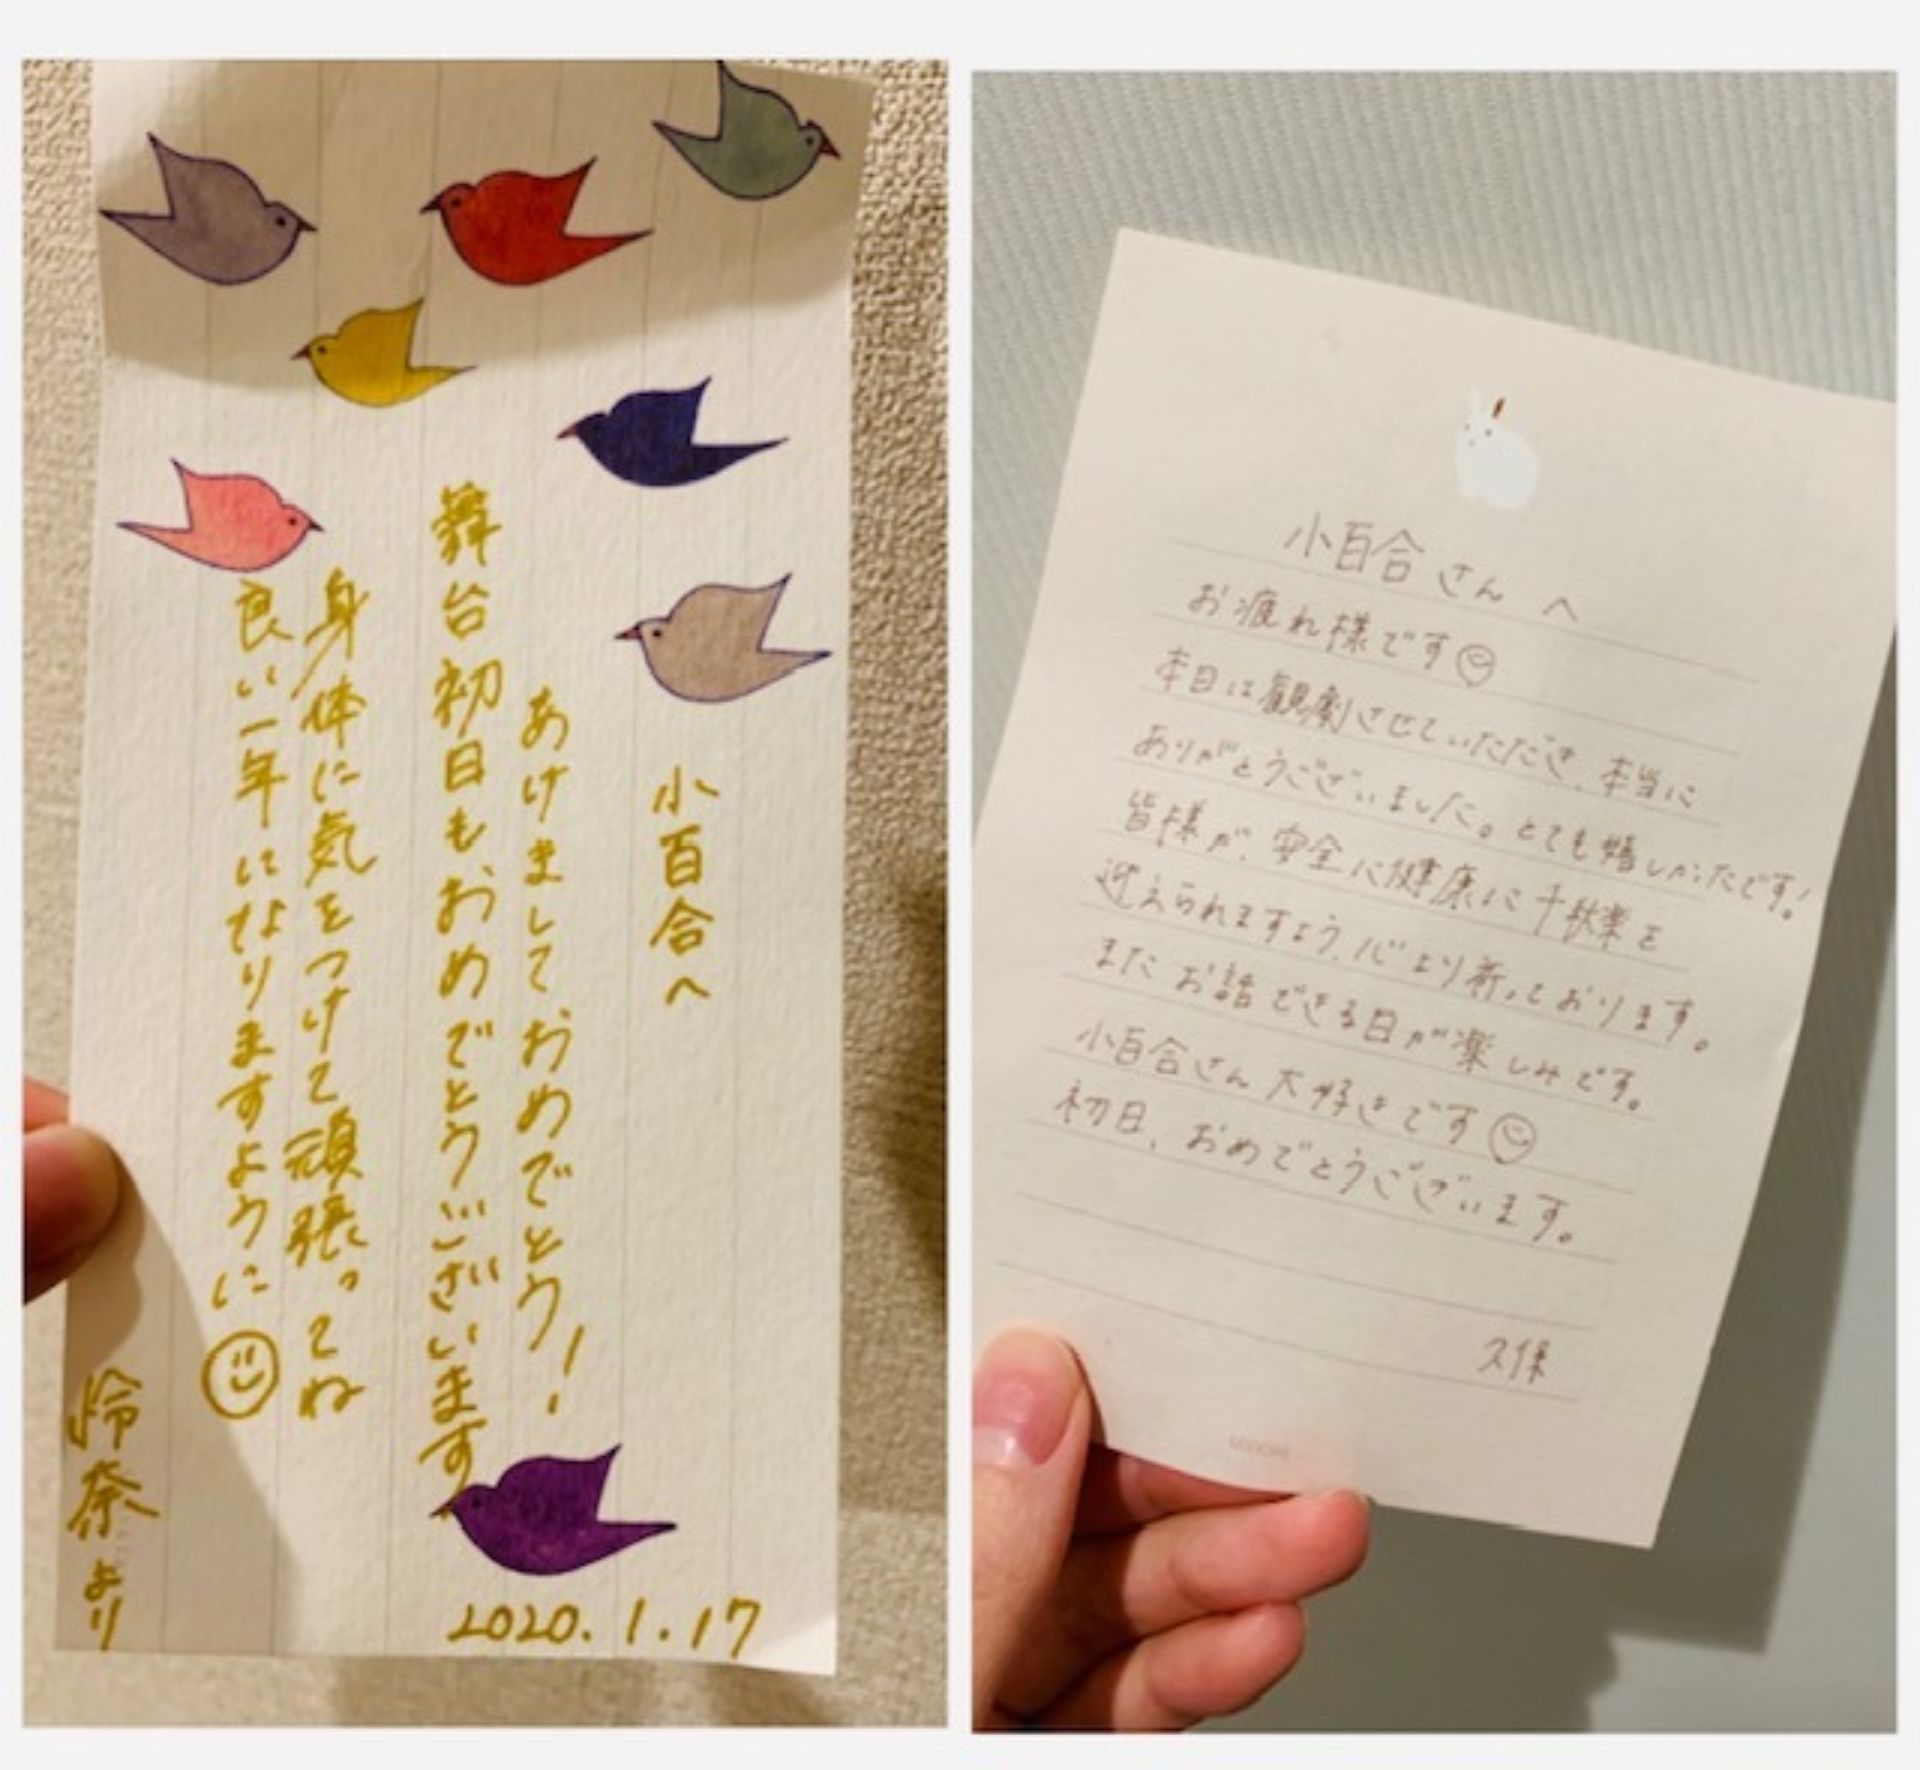 小百合へ
あけましておめでとう!
舞台初日も、おめでとうございます
身体に気をつけて頑張ってね
良い一年になりますように
怜奈より
2020.1.17
小百合さんへ
お疲れ様です
本日は観劇させていただき、本当に
ありがとうございました。とても嬉しかったです!
皆様が、安全に健康に千秋楽を
迎えられますよう、心より祈っております。
またお話できる日が楽しみです。
小百合さん大好きです
初日、おめでとうございます。
久保
MIDORI